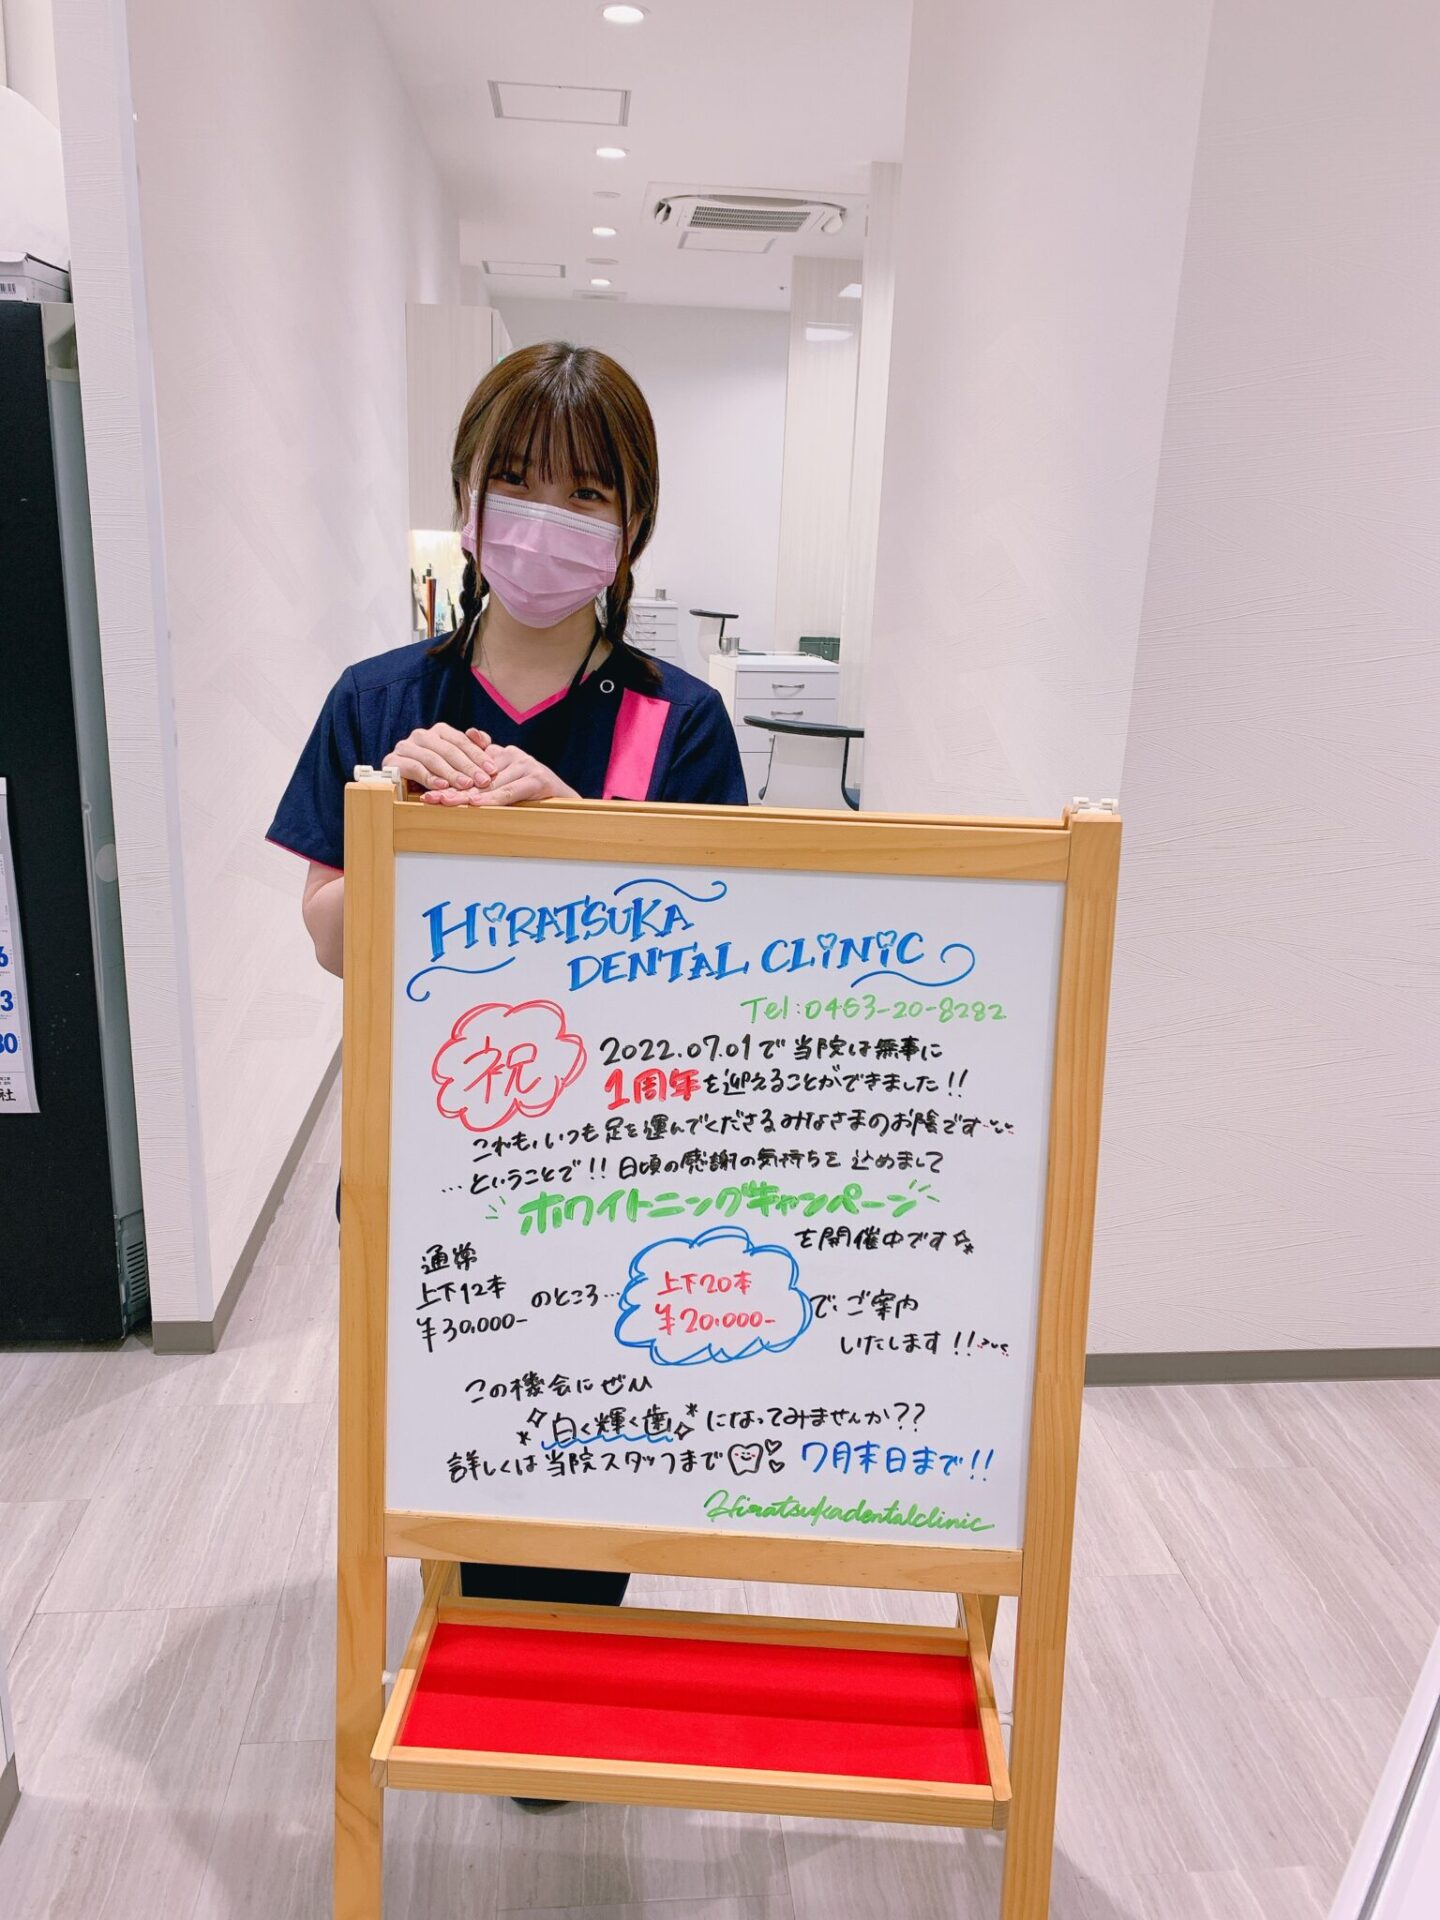 HiRATSUKA
DENTAL CLiNiC
Tel:0463-20-8282
祝
2022.07.01で当院は無事に
1周年を迎えることができました!!
これも、いつも足を運んでくださるみなさまのお陰です
…ということで!!日頃の感謝の気持ちを込めまして
ホワイトニングキャンペーン
を開催中です
通常
上下12本
¥30,000-
のところ…
上下20本
¥20,000-
で、ご案内
いたします!!
この機会にぜひ
白く輝く歯
になってみませんか??
詳しくは当院スタッフまで
7月末日まで!!
Hiratsukadentalclinic
6
3
30
社